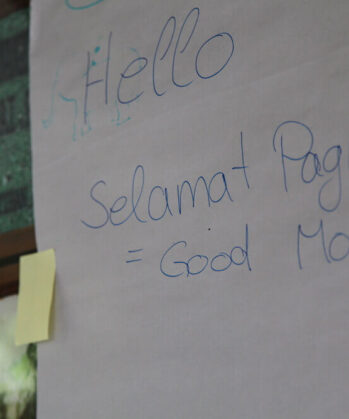 Hello
Selamat Pag
= Good Mo